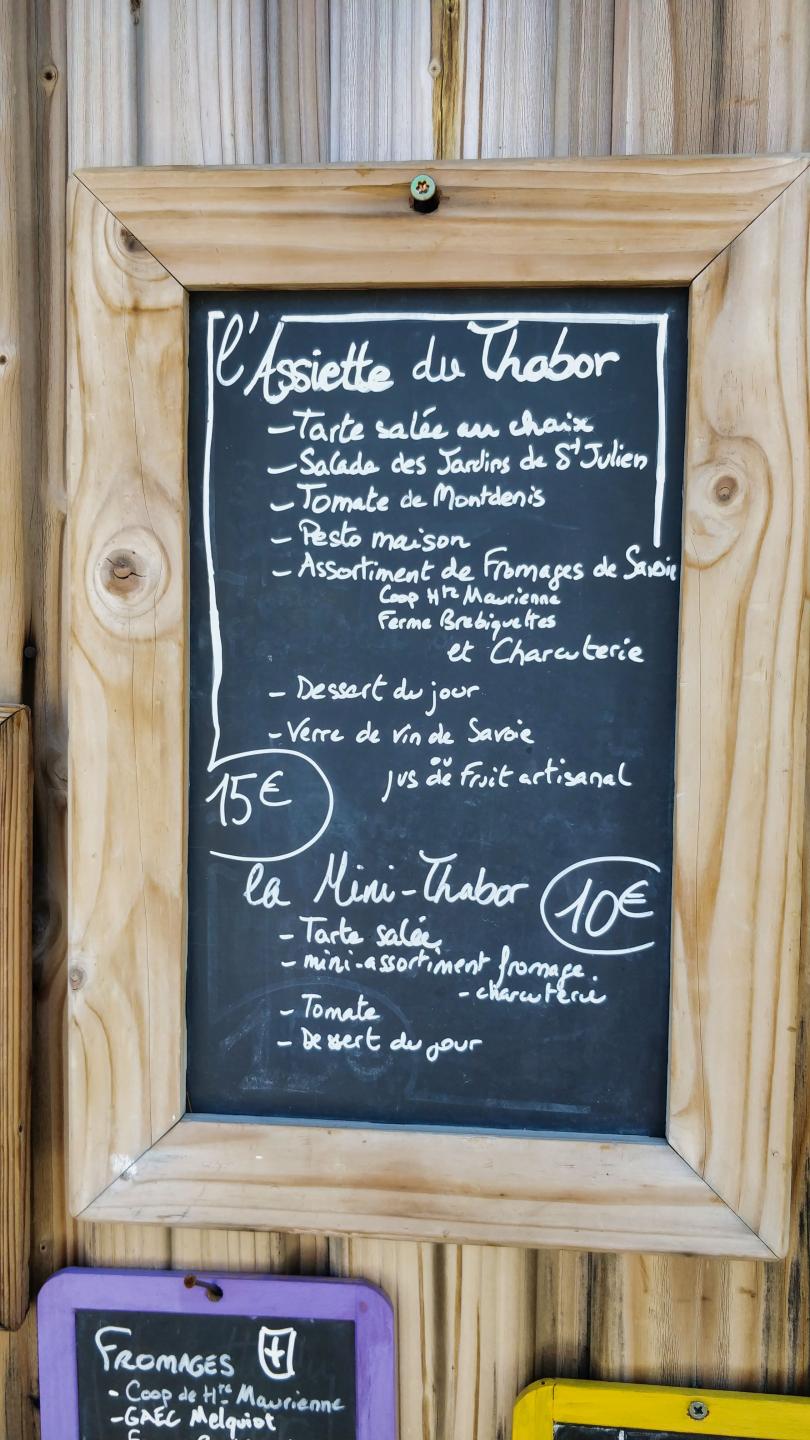 l'Assiette du Thabor
- Tarte salée au choix
- Salade des Jardins de St Julien
- Tomate de Montdenis
- Pesto maison
- Assortiment de Fromages de Savoie
Coop Hte Maurienne
Ferme Brebiquettes
et Charcuterie
- Dessert du jour
- Verre de vin de Savoie
ou
jus de Fruit artisanal
15€
la Mini-Thabor 10€
- Tarte salée
- mini-assortiment fromage.
- charcuterie
- Tomate
- Dessert du jour
FROMAGES
- Coop de Hte Maurienne
- GAEC Melquiot